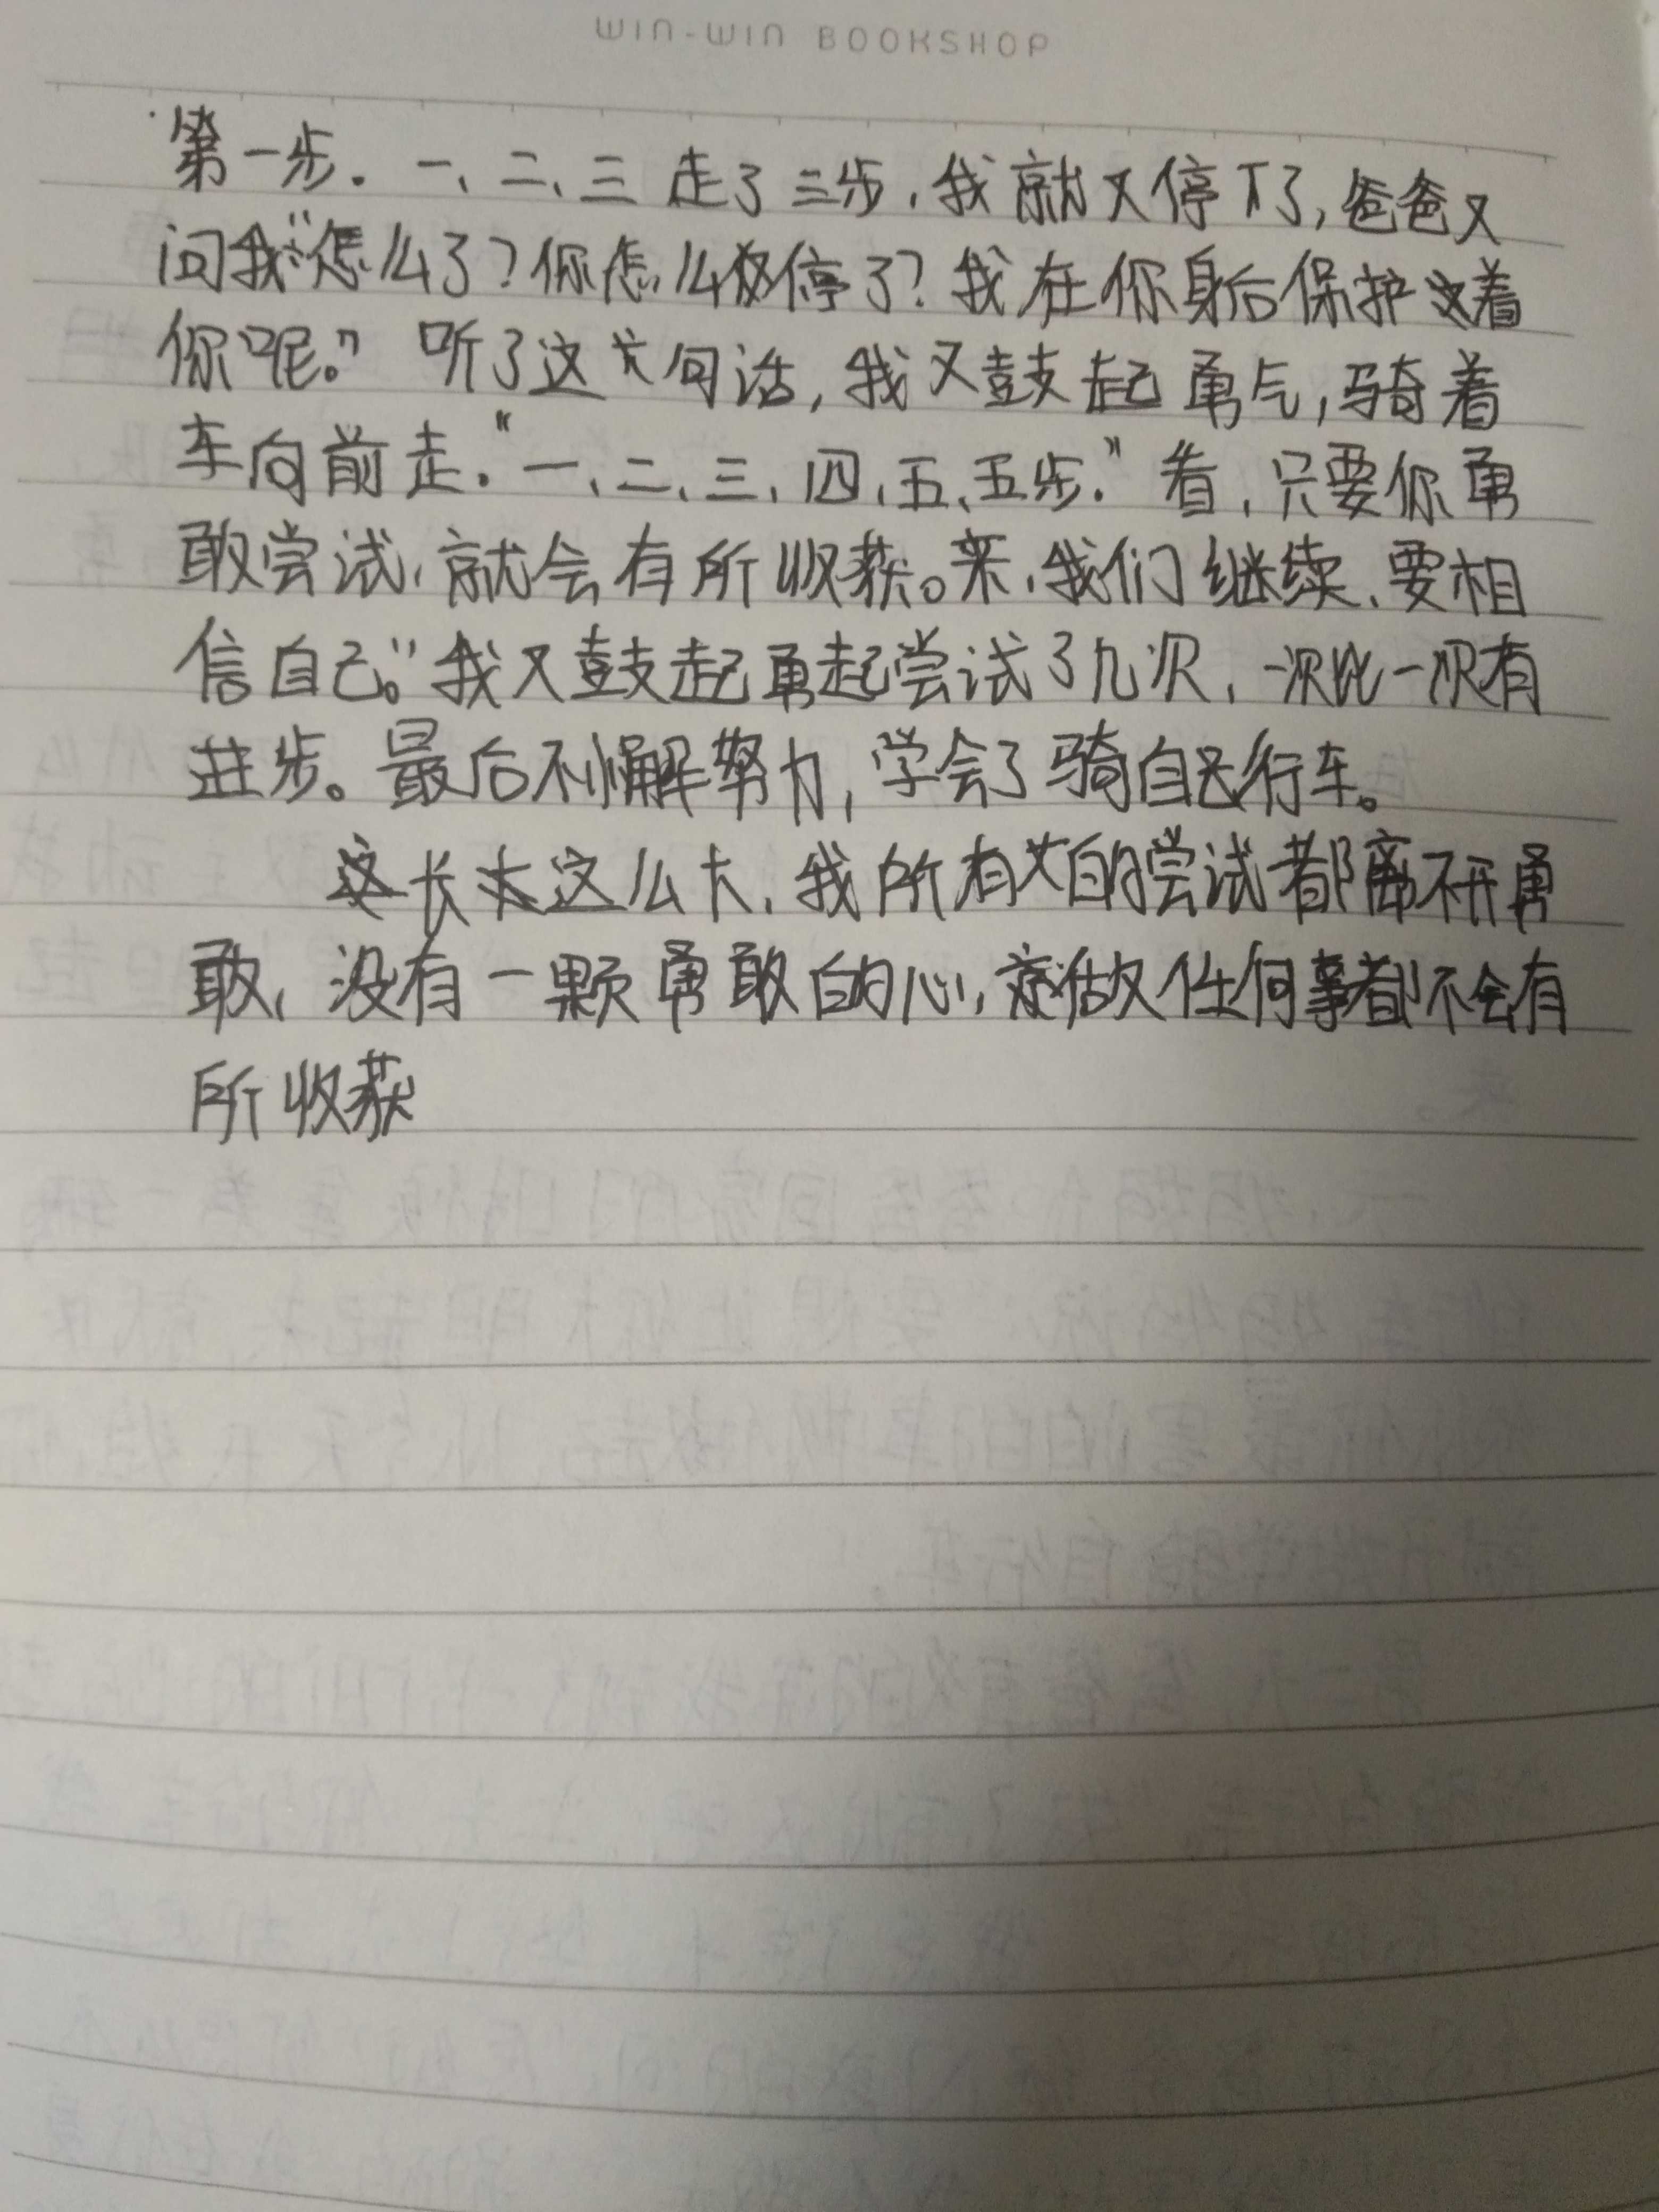 WIN-WIN BOOKSHOP
第一步。一、二、三走了三步，我就又停下了，爸爸又
问我“怎么了？你怎么停了？我在你身后保护着
你呢。”听了这句话，我又鼓起勇气，骑着
车向前走。“一、二、三、四、五、五步。”看，只要你勇
敢尝试，就会有所收获。来，我们继续、要相
信自己。”我又鼓起勇起尝试了几次，一次比一次有
进步。最后不懈努力，学会了骑自行车。
长这么大，我所有的尝试都离不开勇
敢，没有一颗勇敢的心，做任何事都不会有
所收获